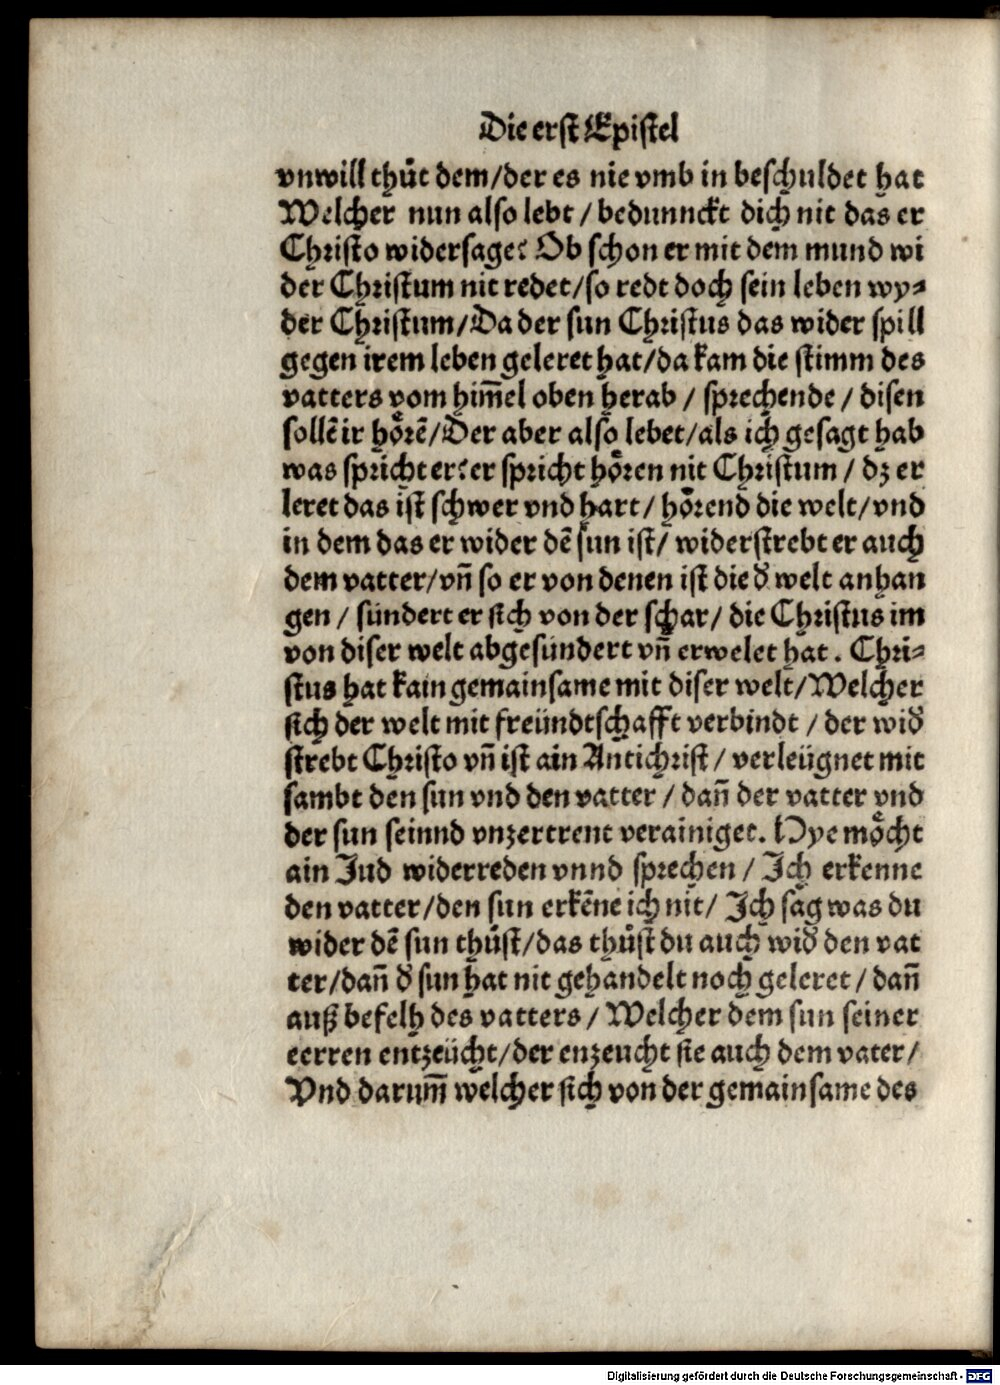 Die erst Epistel
vnwill thůt dem/der es nie vmb in beschuldet hat
Welcher nun also lebt / bedunnckt dich nit das er
Christo widersage? Ob schon er mit dem mund wi
der Christum nit redet/so redt doch sein leben wy⸗
der Christum/Da der sun Christus das wider spill
gegen irem leben geleret hat/da kam die stimm des
vatters vom him̄el oben herab / sprechende / disen
sollē ir hoͤrē/Der aber also lebet/als ich gesagt hab
was spricht er? er spricht hoͤren nit Christum / dz er
leret das ist schwer vnd hart/ hoͤrend die welt/vnd
in dem das er wider dē sun ist/ widerstrebt er auch
dem vatter/vn̄ so er von denen ist die d̕ welt anhan
gen / sündert er sich von der schar/ die Christus im
von diser welt abgesündert vn̄ erwelet hat. Chri⸗
stus hat kain gemainsame mit diser welt/Welcher
sich der welt mit freündtschafft verbindt / der wid̕
strebt Christo vn̄ ist ain Antichrist / verleügnet mit
sambt den sun vnd den vatter / dan̄ der vatter vnd
der sun seinnd vnzertrent verainiget. Hye moͤcht
ain Jud widerreden vnnd sprechen / Ich erkenne
den vatter/den sun erkēne ich nit/ Ich sag was du
wider dē sun thůst/das thůst du auch wid̕ den vat
ter/dan̄ d̕ sun hat nit gehandelt noch geleret / dan̄
auß befelh des vatters / Welcher dem sun seiner
eerren entzeücht/der enzeucht sie auch dem vater/
Vnd darum̄ welcher sich von der gemainsame des
Digitalisierung gefördert durch die Deutsche Forschungsgemeinschaft - DFG